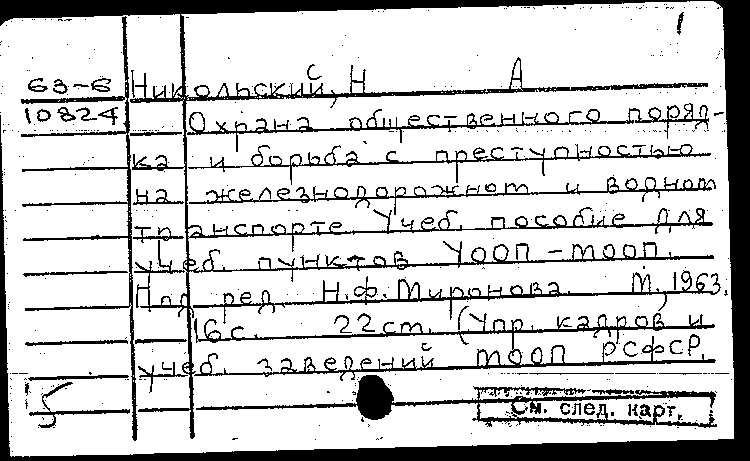 1
63-6 Никольский, Н С А
10824 Охрана общественного поряд-
ка и борьба с преступностью
на железнодорожном и водном
транспорте. Учеб. пособие для
учеб. пунктов УООП-МООП.
Под ред. Н.Ф. Миронова. М., 1963.
16 с. 22 см. (Упр. кадров и
учеб. заведений МООП РСФСР.
5 См. след. карт.